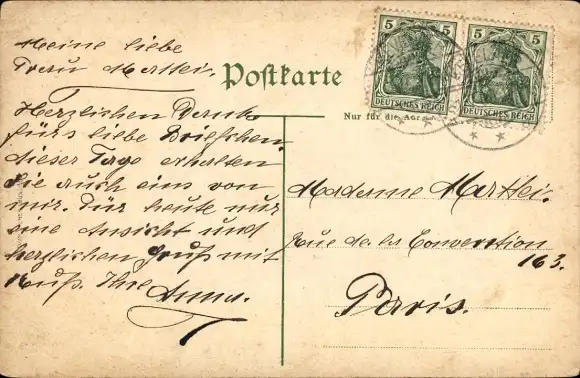 Meine liebe
Frau Mertlei.
Postkarte
Herzlichen Dank
fürs liebe Briefchen,
dieser Tage erhalten
Sie auch eins von
mir. Für heute nur
eine Ansicht und
herzlichen Gruß mit
Kuß. Ihre
Anna.
5 5
DEUTSCHES REICH
5 5
DEUTSCHES REICH
Nur für die Adresse
Madame Mertlei.
Rue de la Convention
163.
Paris.